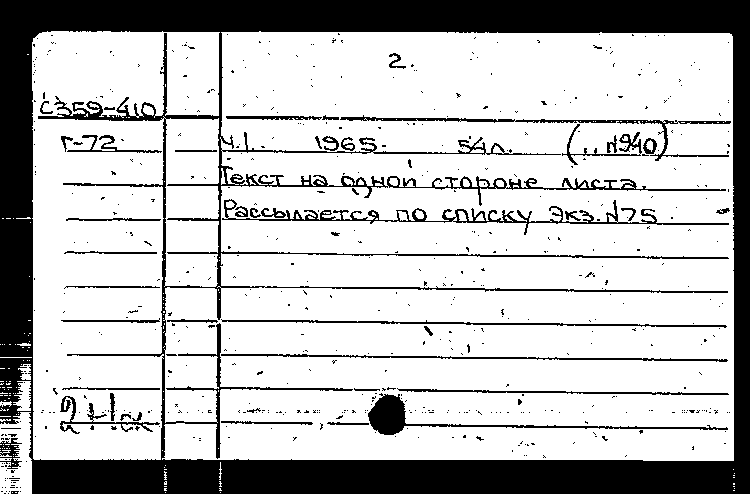 2.
С359-410
Г-72 Ч.1. 1965. 54л. (,, №940)
Текст на одной стороне листа.
Рассылается по списку Экз. №75
2 Нск